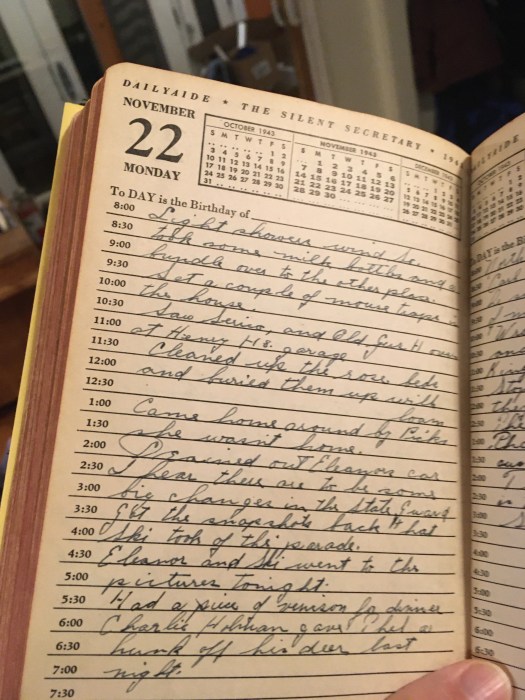 DAILYAIDE * THE SILENT SECRETARY * 194
NOVEMBER
22
MONDAY
OCTOBER 1943
S M T W T F S
1 2
3 4 5 6 7 8 9
10 11 12 13 14 15 16
17 18 19 20 21 22 23
24 25 26 27 28 29 30
31
NOVEMBER 1943
S M T W T F S
1 2 3 4 5 6
7 8 9 10 11 12 13
14 15 16 17 18 19 20
21 22 23 24 25 26 27
28 29 30
DECEMBER
To DAY is the Birthday of
8:00 Light showers wind Se.
8:30 took some milk bottles and a
9:00 bundle over to the other place.
9:30 Set a couple of mouse traps
10:00 the house.
10:30 Saw and Old Gus H over
11:00 at Harry H's garage
11:30 Cleaned up the rose beds
12:00 and buried them up with
12:30 loam
1:00 Came home around by
1:30 she wasn't home.
2:00 out Eleanors car
2:30 I hear there are to be some
3:00 big changes in the State Guard
3:30 Got the snapshots back that
4:00 Ski took of the parade.
4:30 Eleanor and Ski went to the
5:00 pictures tonight.
5:30 Had a piece of venison for dinner
6:00 Charlie gave Chet a
6:30 hunk off his deer last
7:00 night.
7:30